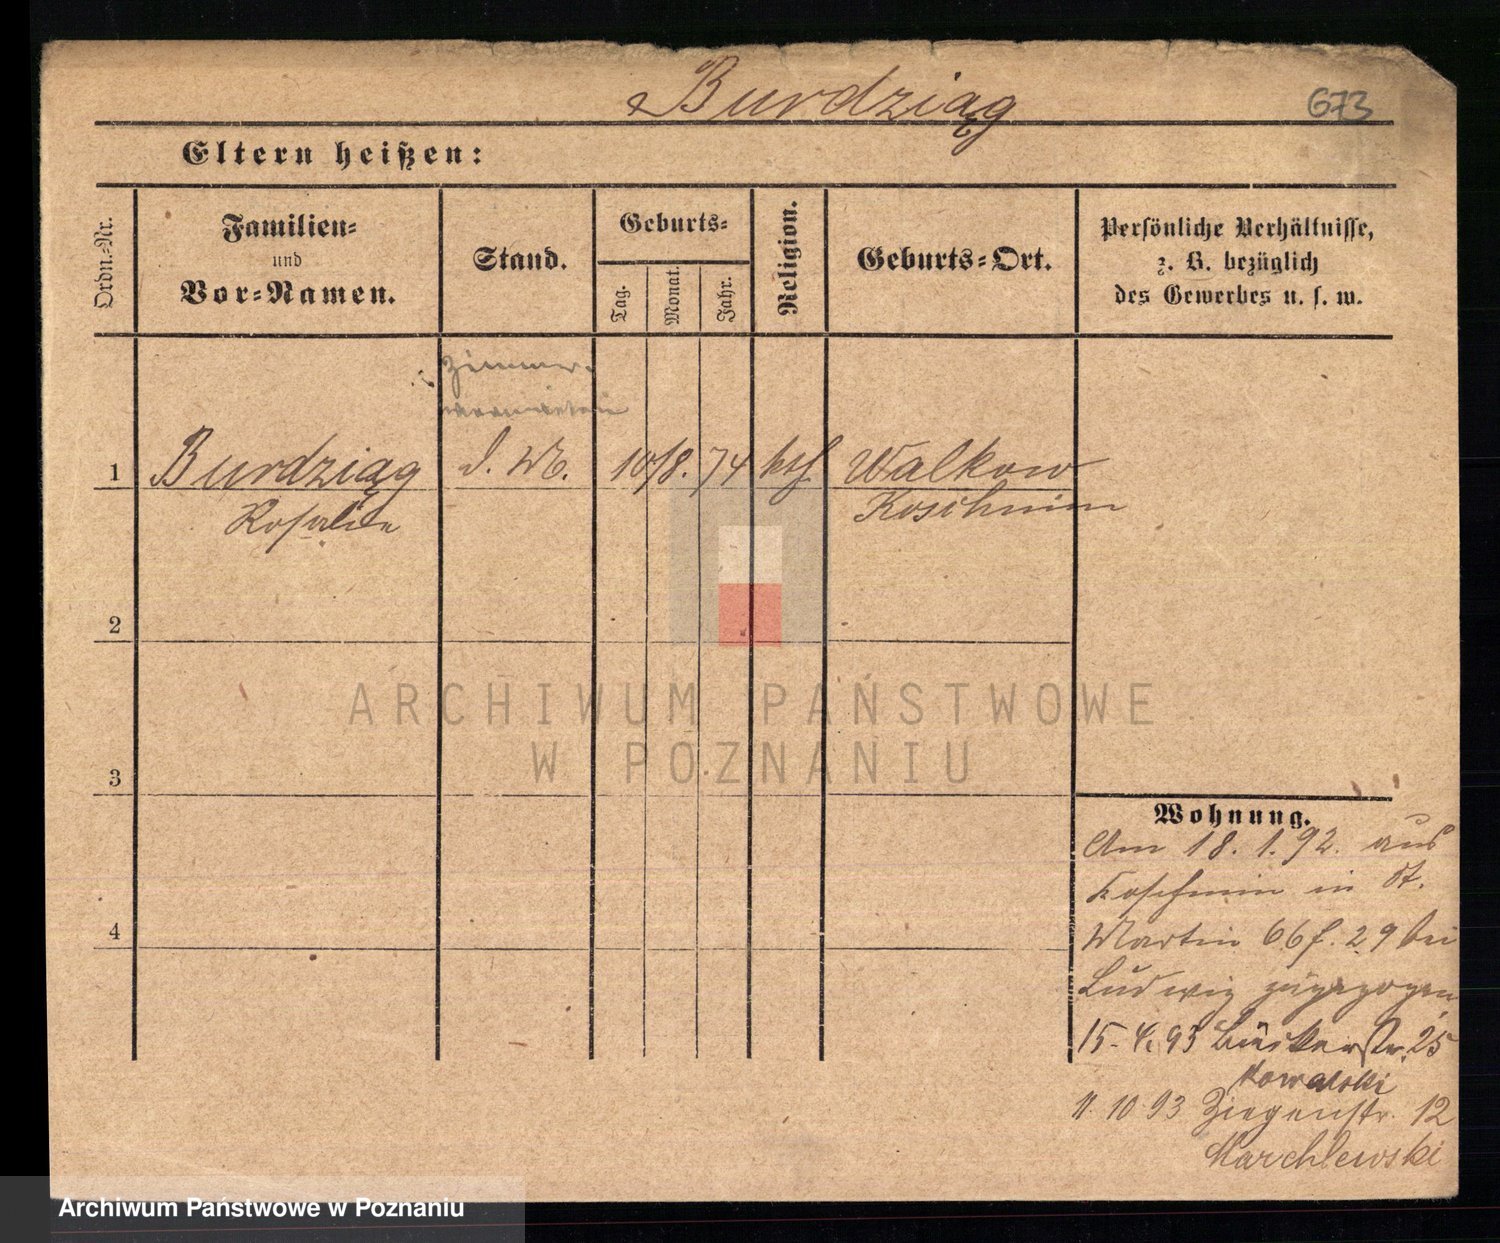 Burdziąg
673
Eltern heißen:
Ordn.-Nr.
Familien-
und
Vor-Namen.
Stand.
Geburts-
Tag.
Monat.
Jahr.
Religion.
Geburts-Ort.
Persönliche Verhältnisse,
z. B. bezüglich
des Gewerbes u. s. w.
Zimmer-
1 Burdziąg d. M. 10/8. 74 kth Walkow
Rosalie Koschmin
2
3
4
Wohnung.
Am 18. 1. 92. aus
Koschmin in St.
Martin 66 f. 29 bei
Ludwig zugezogen
15. 4. 93 Bäckerstr. 25
Kowalski
11. 10 93 Ziegenstr. 12
Marchlewski
ARCHIWUM PAŃSTWOWE
W POZNANIU
Archiwum Państwowe w Poznaniu